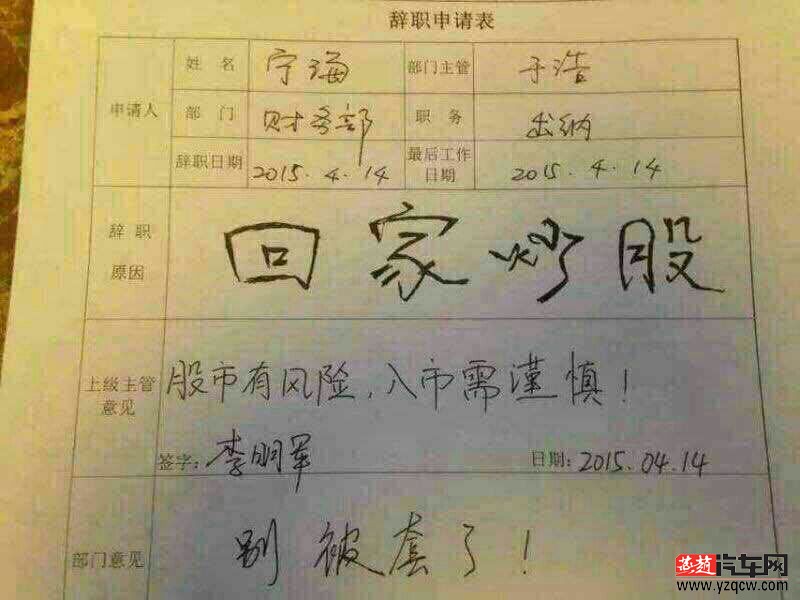 辞职申请表
申请人
姓名 宁海 部门主管 于浩
部门 财务部 职务 出纳
辞职日期 2015.4.14 最后工作日期 2015.4.14
辞职原因
回家炒股
上级主管意见
股市有风险,入市需谨慎!
签字: 李明军 日期: 2015.04.14
部门意见
别被套了!
芜湖汽车网
www.yzqcw.com